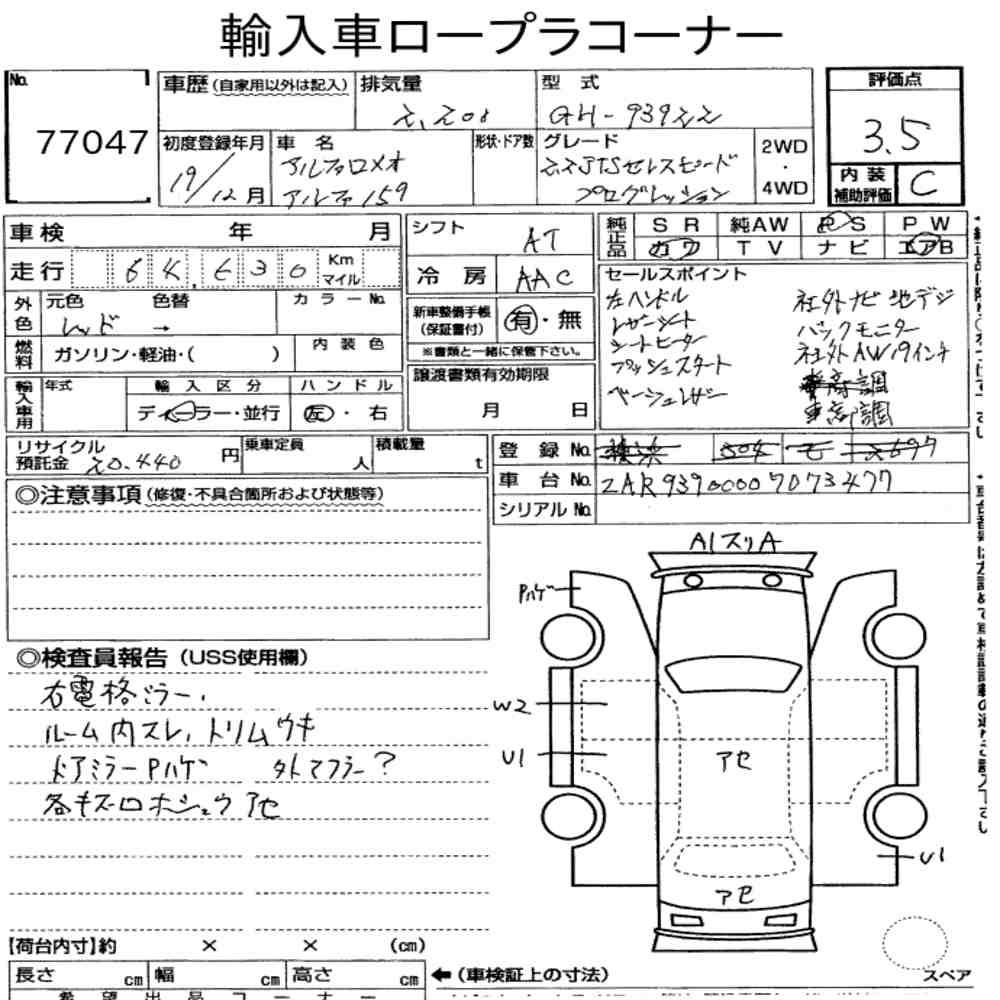 輸入車ロープラコーナー
No. 77047
車歴(自家用以外は記入)
排気量 2,200
型式 GH-93922
評価点 3.5
内装補助評価 C
初度登録年月 19/12月
車名 アルファロメオ アルファ159
形状・ドア数
グレード 2.2JTSセレスピード プログレッション
2WD・4WD
車検 年 月
走行 64,630 Km マイル
シフト AT
冷房 AAC
純正品 SR 純AW PS PW
カワ TV ナビ エアB
外色 元色 色替 カラーNo.
レッド →
燃料 ガソリン・軽油・( )
内装色
新車整備手帳(保証書付) 有・無
※書類と一緒に保管下さい。
譲渡書類有効期限
月 日
輸入車用 年式 輸入区分 ハンドル
ディーラー・並行 左・右
セールスポイント
左ハンドル 社外ナビ 地デジ
レザーシート バックモニター
シートヒーター 社外AW19インチ
プッシュスタート
ベージュレザー 車高調
リサイクル預託金 20.440円
乗車定員 人
積載量 t
登録No.
車台No. ZAR93900007073477
シリアルNo.
◎注意事項(修復・不具合箇所および状態等)
◎検査員報告(USS使用欄)
右電格ミラー、
ルーム内スレ、トリムウキ
ドアミラーPハゲ 外マフラー?
各キズロホシュウアセ
A1スリA
Pハゲ
W2
U1
アセ
U1
アセ
スペア
【荷台内寸】約 × × (cm)
長さ cm 幅 cm 高さ cm
←(車検証上の寸法)
希望出品コーナー